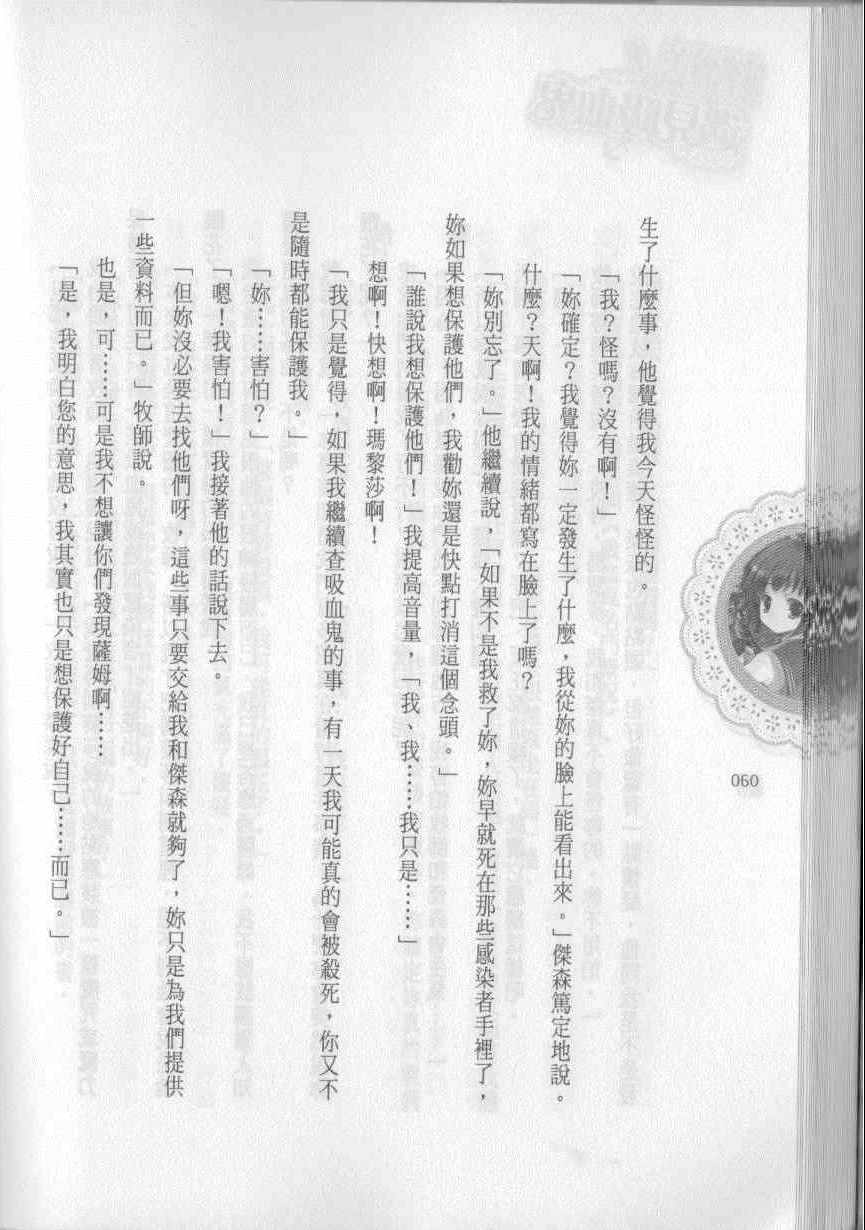 生了什麼事，他覺得我今天怪怪的。
「我？怪嗎？沒有啊！」
「妳確定？我覺得妳一定發生了什麼，我從妳的臉上能看出來。」傑森篤定地說。
什麼？天啊！我的情緒都寫在臉上了嗎？
「妳別忘了。」他繼續說，「如果不是我救了妳，妳早就死在那些感染者手裡了，
妳如果想保護他們，我勸妳還是快點打消這個念頭。」
「誰說我想保護他們！」我提高音量，「我、我……我只是……」
想啊！快想啊！瑪黎莎啊！
「我只是覺得，如果我繼續查吸血鬼的事，有一天我可能真的會被殺死，你又不
是隨時都能保護我。」
「妳……害怕？」
「嗯！我害怕！」我接著他的話說下去。
「但妳沒必要去找他們呀，這些事只要交給我和傑森就夠了，妳只是為我們提供
一些資料而已。」牧師說。
也是，可……可是我不想讓你們發現薩姆啊……
「是，我明白您的意思，我其實也只是想保護好自己……而已。」
060